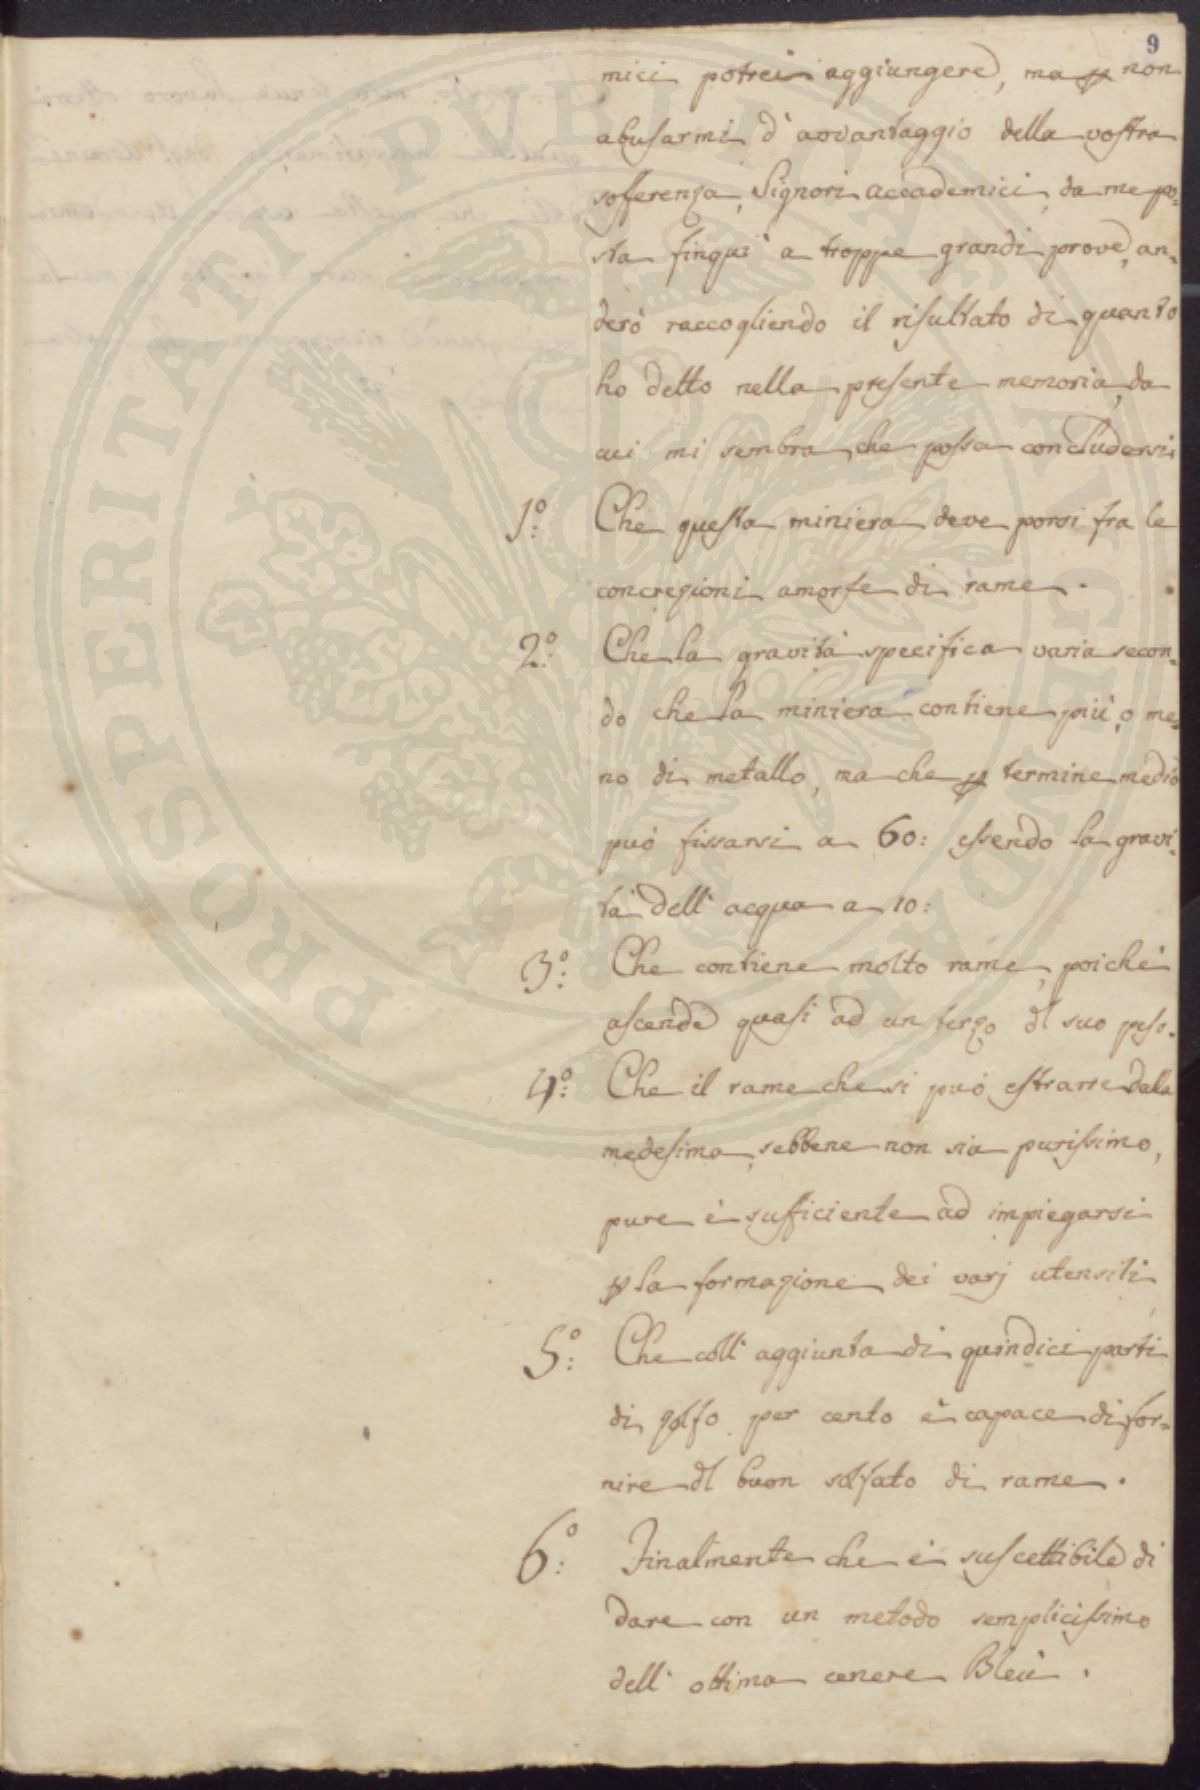 9
mici potrei aggiungere, ma p non
abusarmi d'avvantaggio della vostra
sofferenza, Signori Accademici, da me po=
sta finqui a troppe grandi prove, an=
derò raccogliendo il risultato di quanto
ho detto nella presente memoria, da
cui mi sembra che possa concludersi
1.º Che questa miniera deve porsi fra le
concrezioni amorfe di rame.
2.º Che la gravità specifica varia secon=
do che la miniera contiene più, o me=
no di metallo, ma che p termine medio
può fissarsi a 60: essendo la gravi=
tà dell'acqua a 10:
3.º Che contiene molto rame, poichè
ascende quasi ad un terzo dl suo peso.
4.º Che il rame che si può estrarre dalla
medesima, sebbene non sia purissimo,
pure è sufficiente ad impiegarsi
p la formazione dei varj utensili
5.º Che coll'aggiunta di quindici parti
di zolfo per cento è capace di for=
nire dl buon solfato di rame.
6.º Finalmente che è suscettibile di
dare con un metodo semplicissimo
dell'ottima cenere Bleù.
PROSPERITATI PVBLICAE AVGENDAE